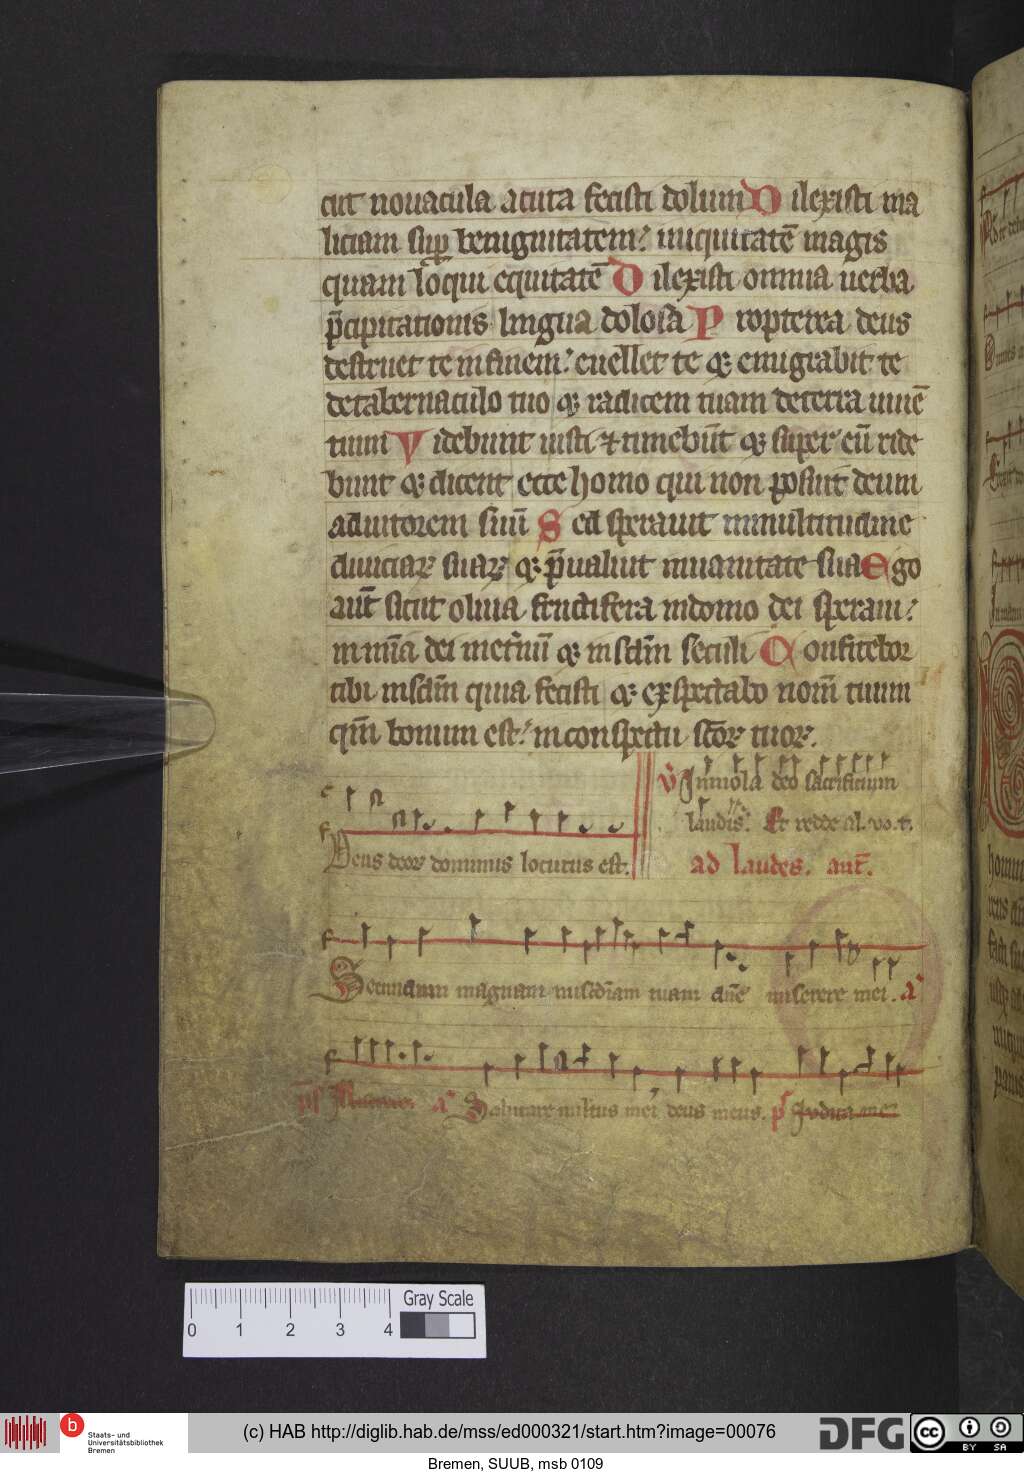 cut nouacula acuta fecisti dolum D ilexisti ma
liciam sup benignitatem: iniquitatē magis
quam loqui equitatē D ilexisti omnia uerba
p̄cipitationis lingua dolosa P ropterea deus
destruet te in finem: euellet te ꝙ emigrabit te
detabernaculo tuo ꝙ radicem tuam deterra uiuē
tium V idebunt iusti ⁊ timebūt ꝙ super eū ride
bunt ꝙ dicent ecce homo qui non posuit deum
adiutorem suū S ed sperauit inmultitudine
diuiciaꝝ suaꝝ ꝙ p̄ualuit inuanitate sua Ego
aut̄ sicut oliua fructifera indomo dei speraui:
in mīa dei inet̄nū ꝙ insclm̄ seculi C onfitebor
tibi insclm̄ quia fecisti ꝙ exspectabo nom̄ tuum
qm̄ bonum est: inconspectu scōꝝ tuoꝝ.
V̄ Inmola deo sacrificium
laudis. Et redde al. uo. t.
Deus deoꝝ dominus locutus est.
ad laudes. ant̄.
Secundum magnam misc̄diam tuam dn̄e miserere mei. a
ps̄ Miserere. a Salutare uultus mei deus meus. p̄ Iudica me
0 1 2 3 4 Gray Scale
b Staats- und
Universitätsbibliothek
Bremen
(c) HAB http://diglib.hab.de/mss/ed000321/start.htm?image=00076
DFG
cc BY SA
Bremen, SUUB, msb 0109